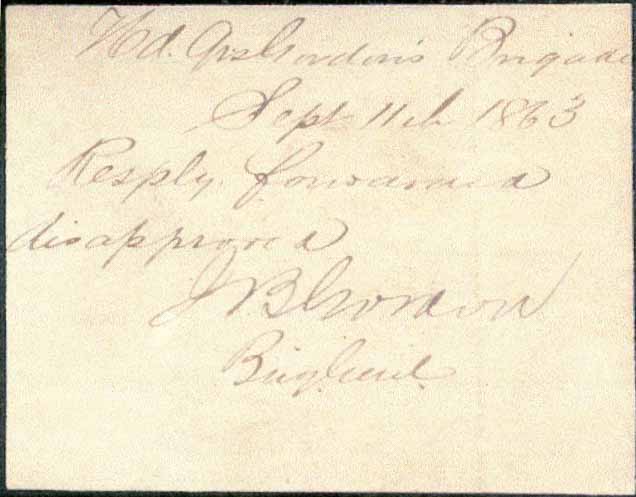 Hd. Qrs Gordon's Brigade
Sept 11th 1863
Resply. forwarded
disapproved
J B Gordon
Brig Genl.